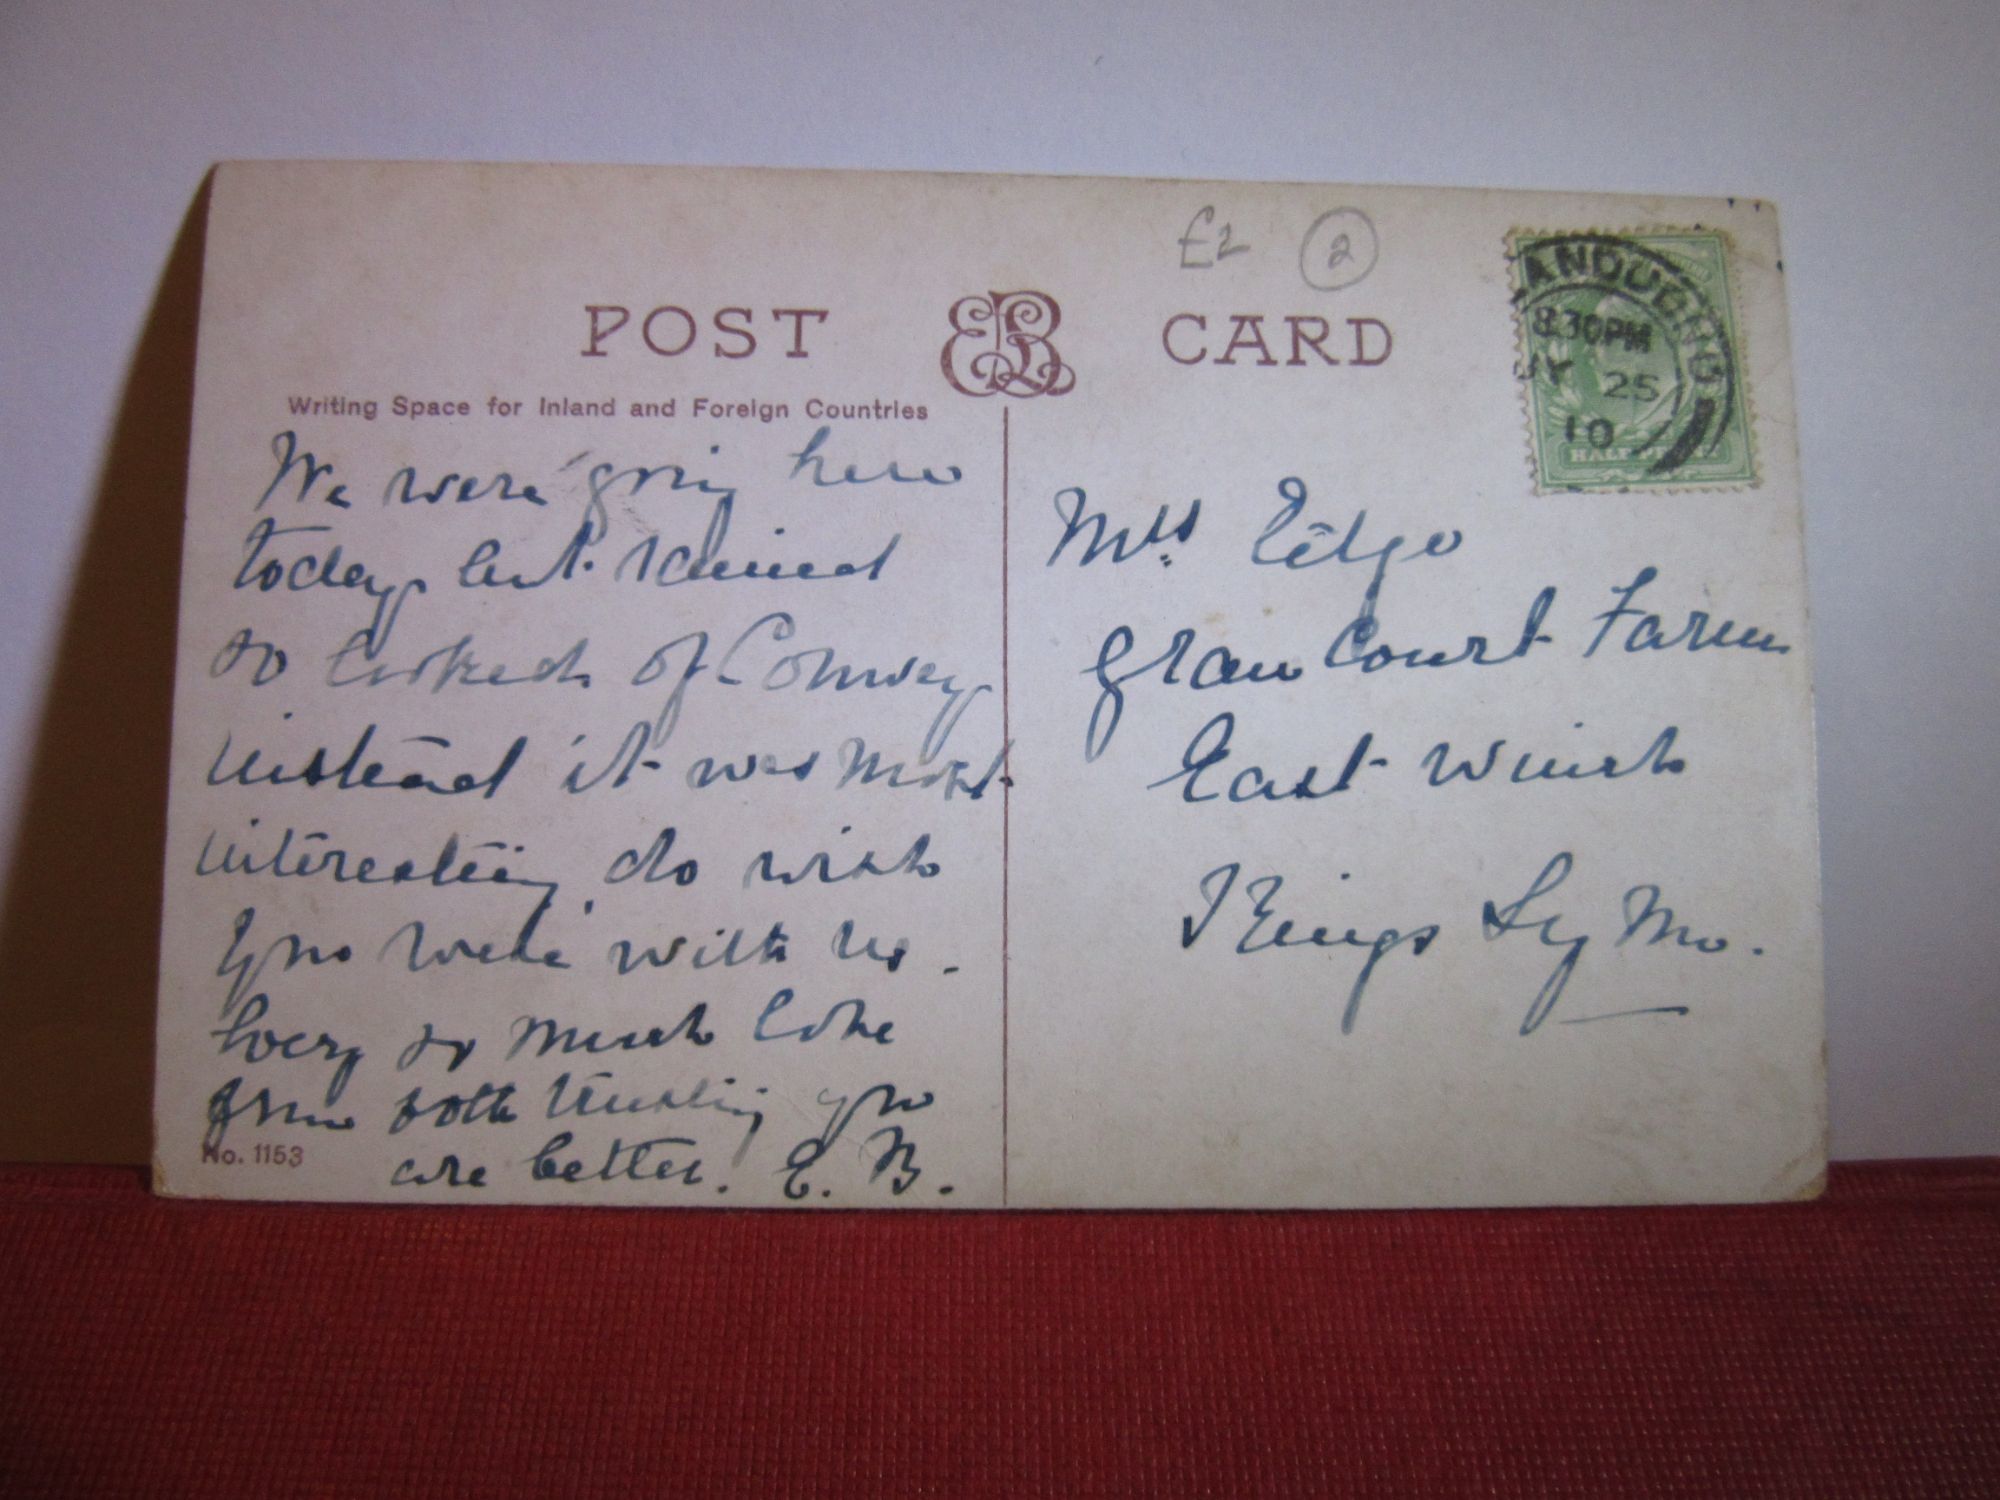 £2 2
POST CARD
Writing Space for Inland and Foreign Countries
ANDUDNO
8.30PM
25
10
HALFPENNY
We were going here
today but rained
so looked of Conway
instead it was most
interesting do wish
you were with us.
Every so much love
from both trusting you
are better. E. B.
No. 1153
Mrs Edge
Court Farm
East Winch
Kings Lynn.